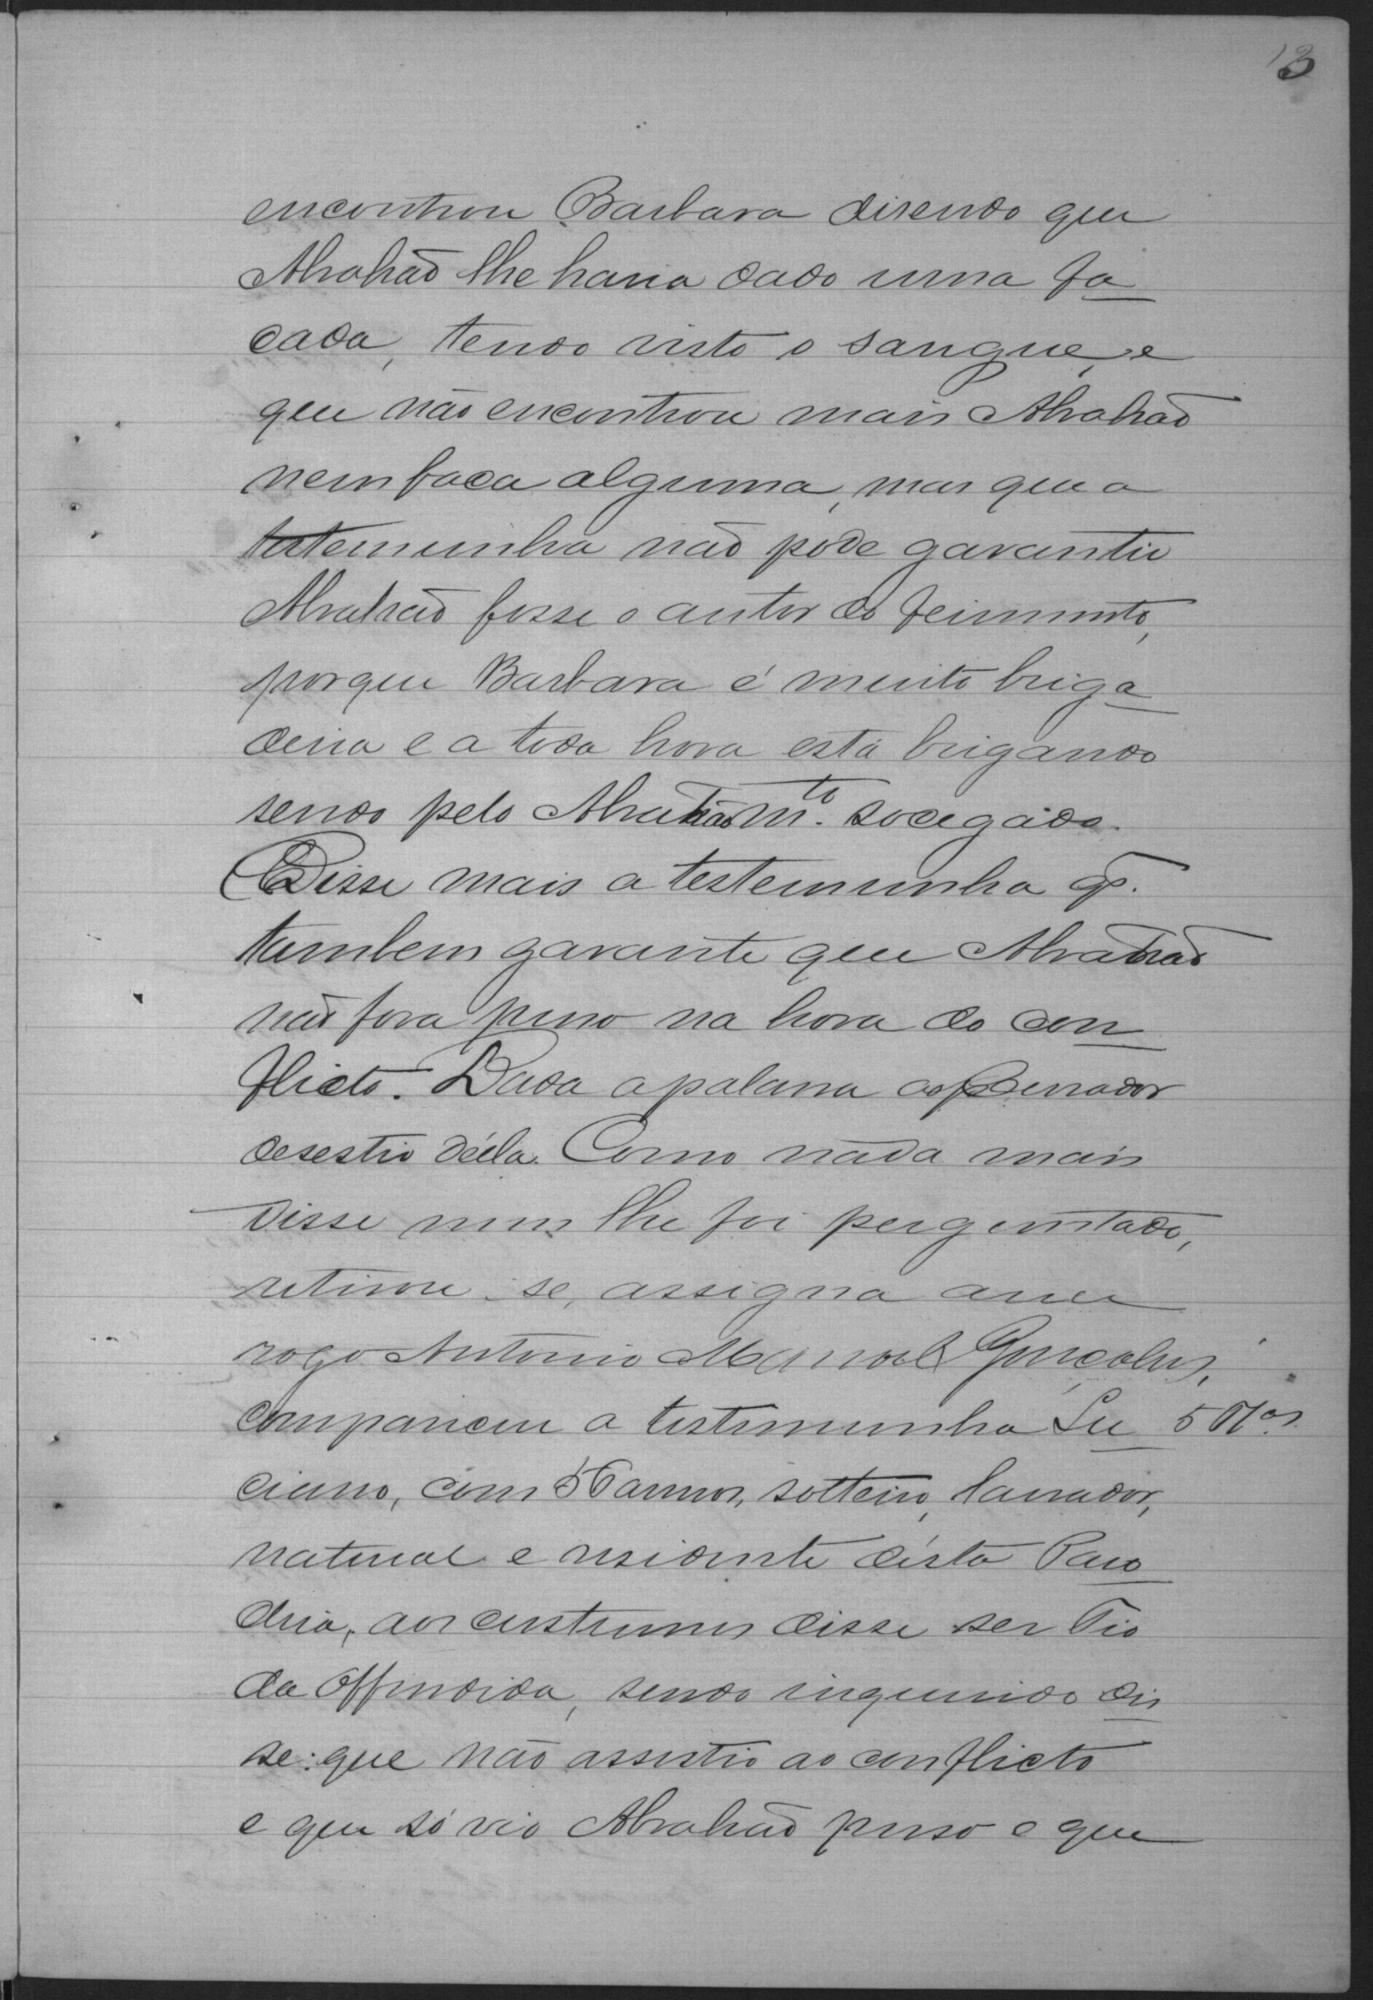 13
encontrou Barbara disendo que
Abrahão lhe havia dado uma fa
cada, tendo visto o sangue, e
que não encontrou mais Abrahão
nem faca alguma, mas que a
testemunha não pode garantir
Abrahão fosse o autor do ferimento,
porque Barbara é muito briga
deira e a toda hora está brigando
sendo pelo Abrahão mto. socegado.
Disse mais a testemunha q̃.
tambem garante que Abrahão
não fora preso na hora do con
flicto. Dada a palavra ao
desestio d'éla. Como nada mais
disse nem lhe foi perguntado,
retirou-se, assigna a seu
rogo Antonio Manoel Gonçalves,
compareceu a testemunha Lu 5
ciano, com 56 annos, solteiro, lavrador,
natural e residente d'ésta
aos custumes disse ser Tio
da Offendida, sendo inquirido dis
se: que não assistio ao conflicto
e que só vio Abrahão preso e que